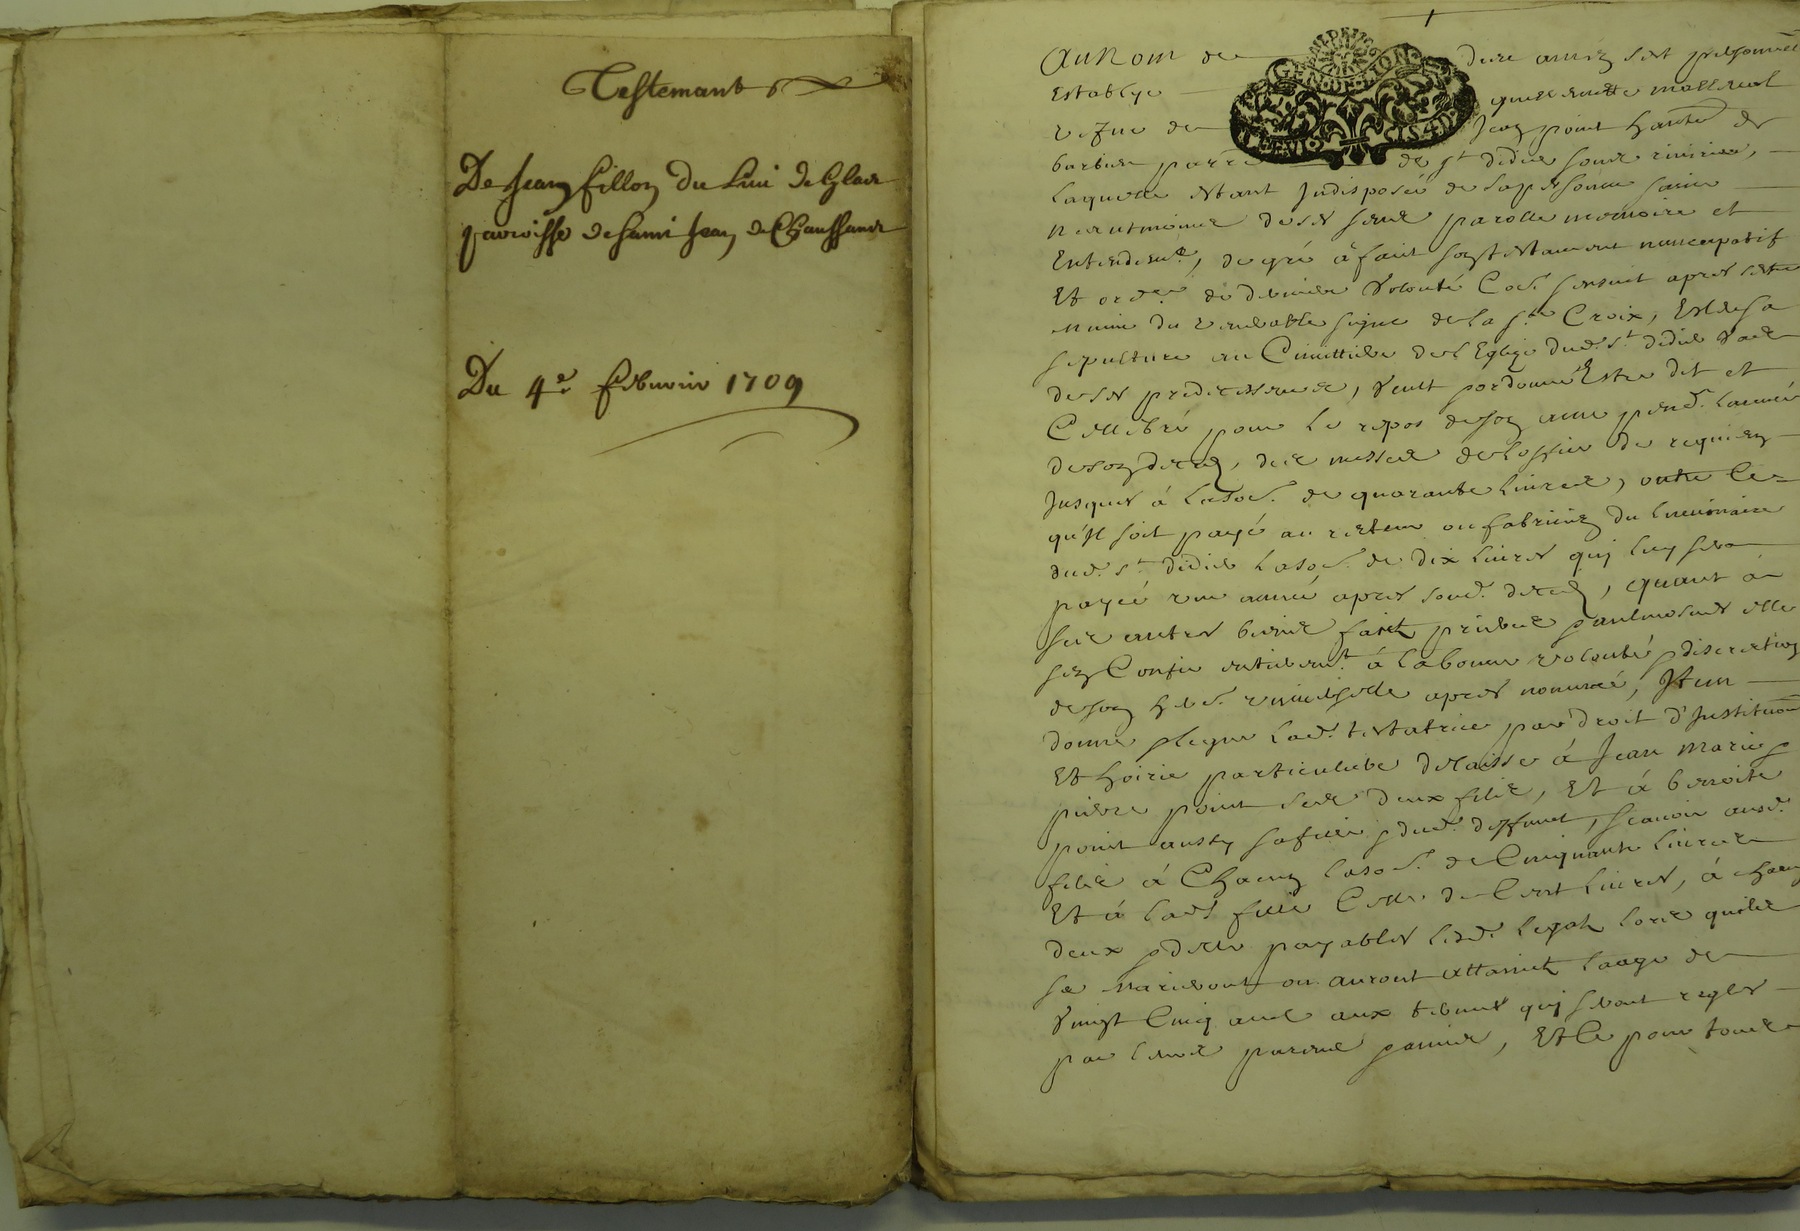 Testemant
De Jean fillon du Lieu de
parroisse de saint Jean de Chaussant
Du 4e. febvrier 1709
Au Nom de Dieu amen soit personnel
Establye
GEN. DE LYON
vefve de Jean point
de st didier soubz riverie,
laquelle estant Indisposée de sa personne saine
neantmoins de ses sens parolle memoire et
Entendemt., de gré a fait son testament nuncupatif
Et ordre. de derniere Volonté Coe. sensuit apres sestre
munie du venerable signe de la ste Croix, Esleu sa
sepulture au Cimettiere de l'Eglize dud. st. didier
de ses predecesseurs, Veult Estre dit et
Cellebré pour le repos de son ame pend. l'année
de son deced, des messes de l'office de requiem
Jusques á la so. de quarante Livres, outre Ce
qu'Il soit payé au recteur ou fabricien du luminaire
dud. st. didier la so. de dix Livres quj luy sera
payée une année apres sond. deced, quant a
ses autres biens faits prieres aulmosnes elle
sen Confie entieremt. á la bonne volonté discretion
de son her. universelle apres nommé, Item
donne legue lad. testatrice par droit d'Institution
Et hoirie particuliere delaisse á Jean Marie
pierre point ses deux filz, Et á benoite
point aussy sa fille dud. deffunct, sçavoir ausd.
filz á Chacun la so. de Cinquante Livres
Et á lad. fille Celle de Cent Livres, á chacun
deux payables lesd. legats lors quilz
se marieront ou auront attaint l'aage de
Vingt Cinq ans aux termes quj seront reglés
par leurs parens, Et Ce pour tous